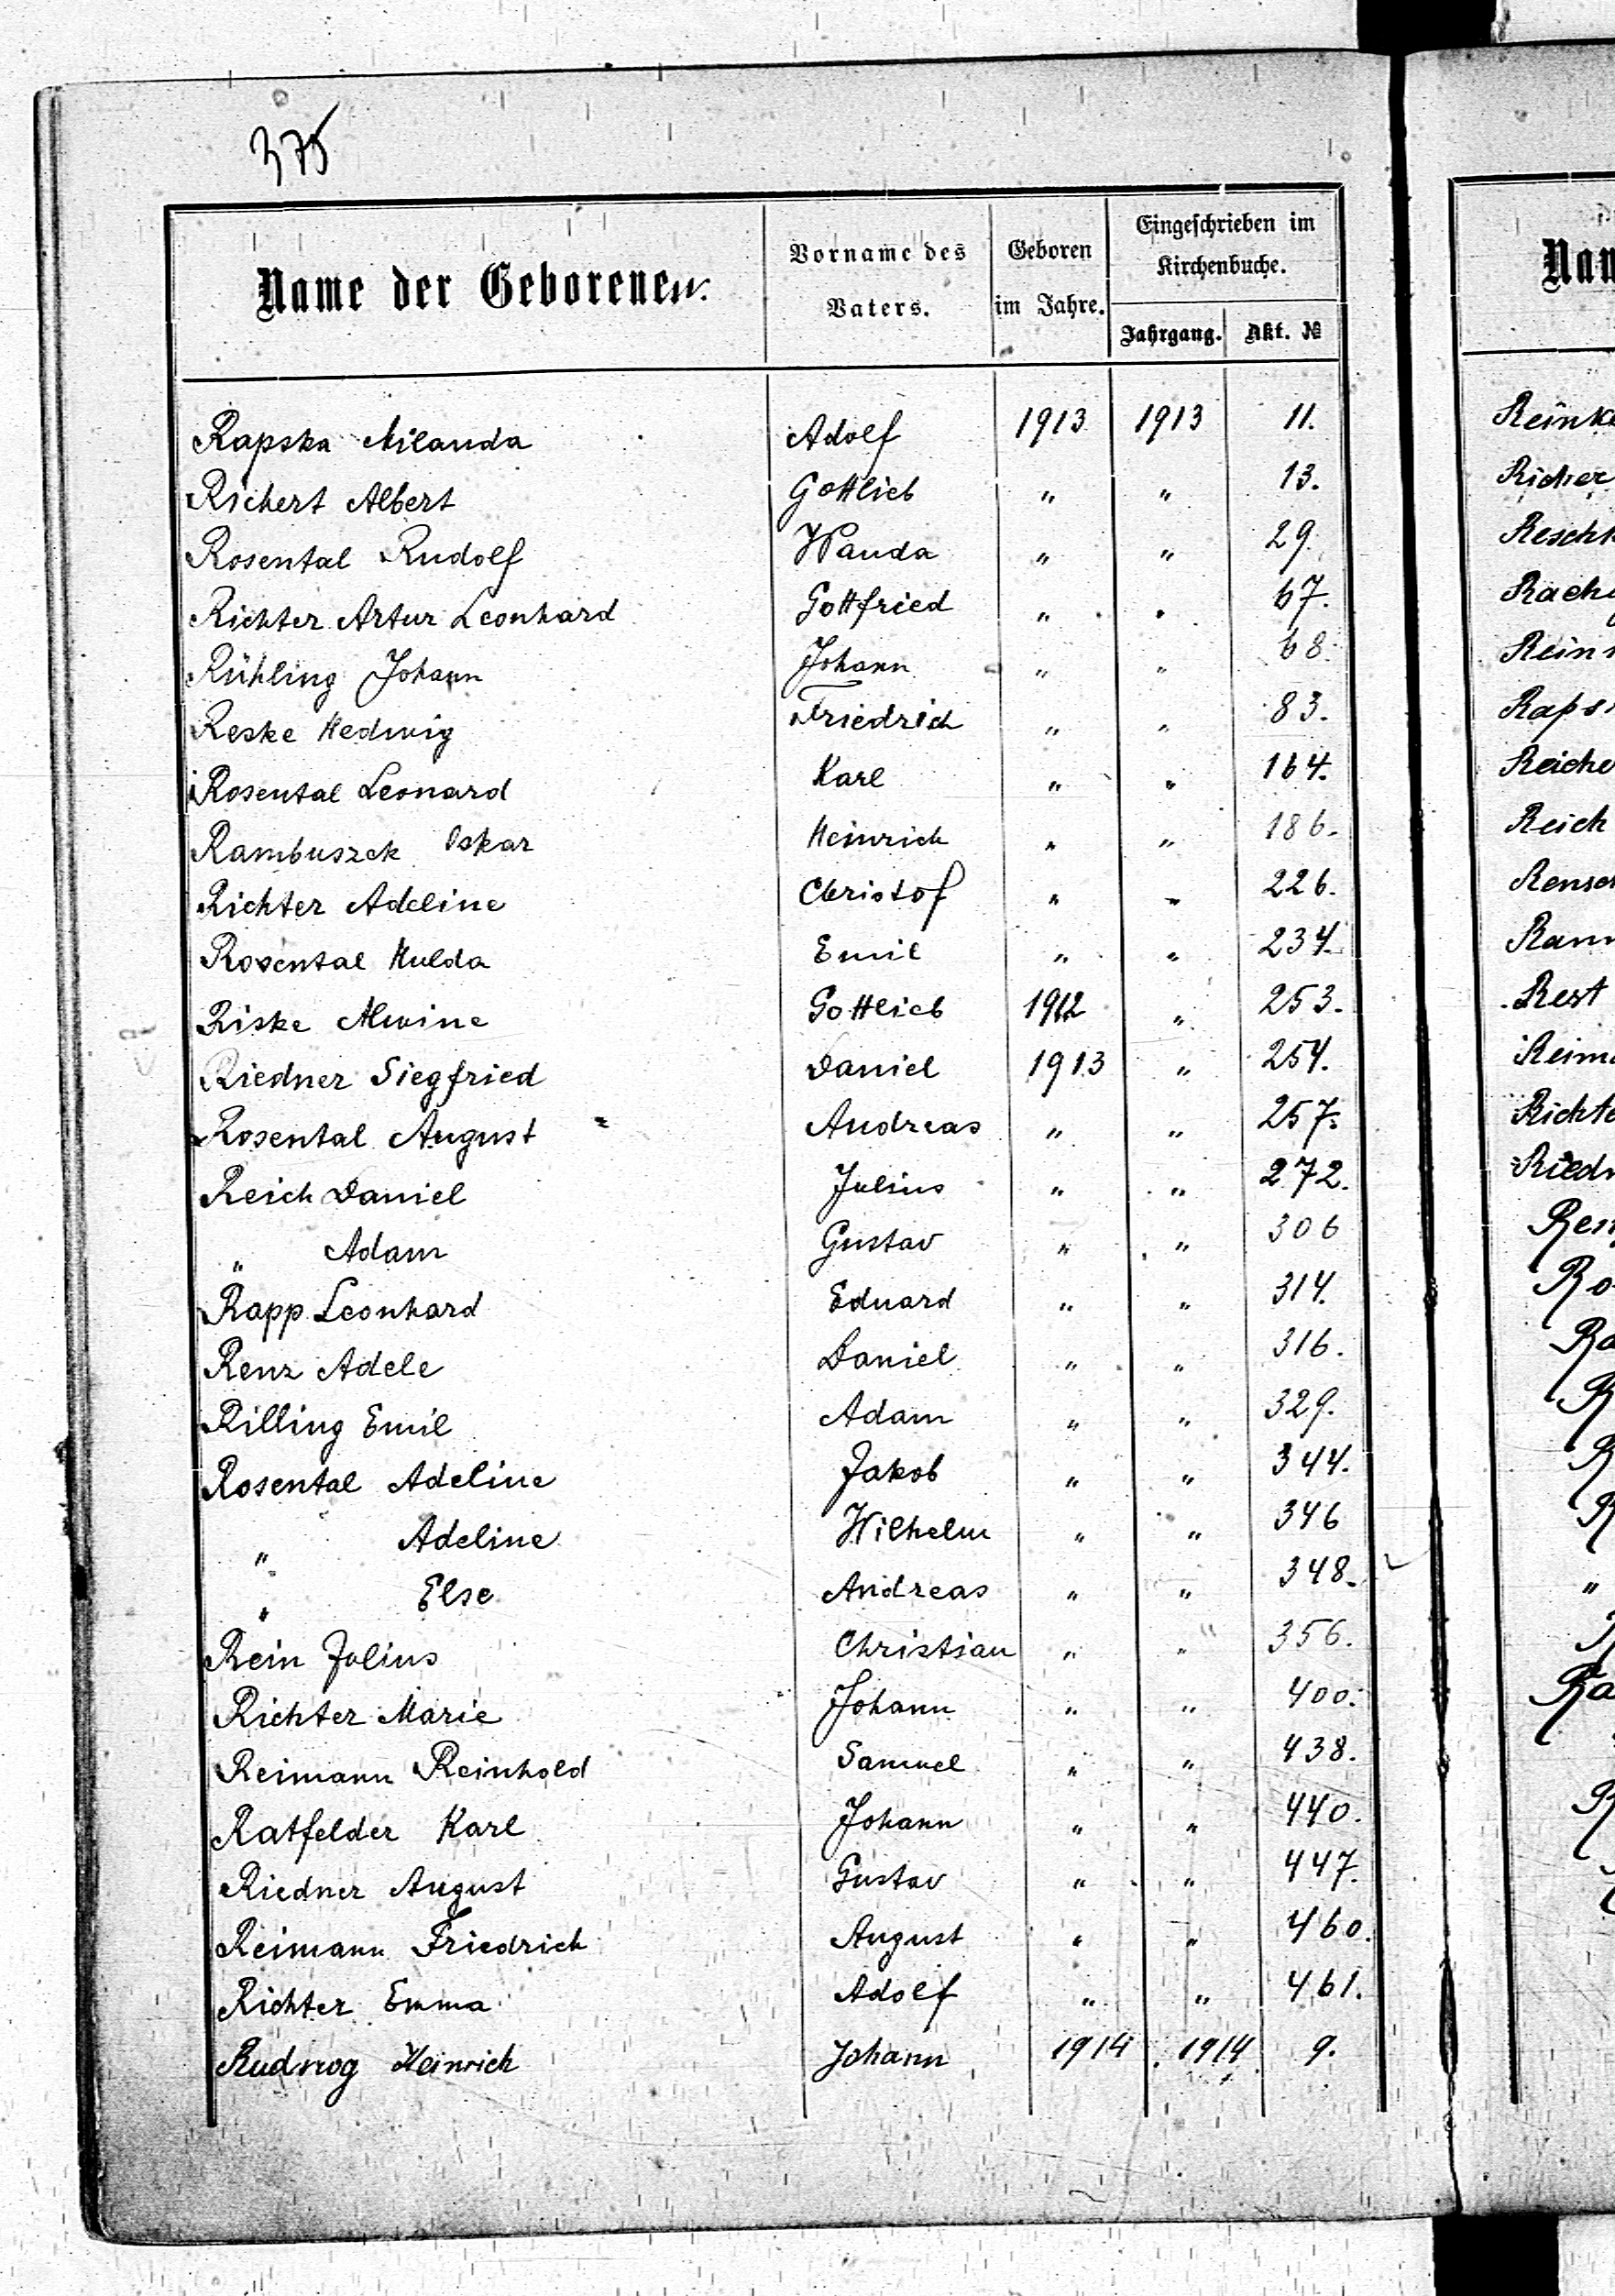 375
Name der Geborenen.
Vorname des Vaters.
Geboren im Jahre.
Eingeschrieben im Kirchenbuche.
Jahrgang. Akt. №
Rapska Milanda Adolf 1913 1913 11.
Richert Albert Gottlieb " " 13.
Rosental Rudolf Wanda " " 29.
Richter Artur Leonhard Gottfried " " 67.
Rühling Johann Johann " " 68.
Reske Hedwig Friedrich " " 83.
Rosental Leonard Karl " " 164.
Rambuszek Oskar Heinrich " " 186.
Richter Adeline Christof " " 226.
Rosental Hulda Emil " " 234.
Riske Alwine Gottlieb 1912 " 253.
Riedner Siegfried Daniel 1913 " 254.
Rosental August Andreas " " 257.
Reich Daniel Julius " " 272.
" Adam Gustav " " 306
Rapp Leonhard Eduard " " 314.
Renz Adele Daniel " " 316.
Rilling Emil Adam " " 329.
Rosental Adeline Jakob " " 344.
" Adeline Wilhelm " " 346
" Else Andreas " " 348.
Rein Julius Christian " " 356.
Richter Marie Johann " " 400.
Reimann Reinhold Samuel " " 438.
Ratfelder Karl Johann " " 440.
Riedner August Gustav " " 447.
Reimann Friedrich August " " 460.
Richter Emma Adolf " " 461.
Heinrich Johann 1914 1914 9.
Nam
Reinke
Richer
Reschk
Rach
Reins
Raps
Reiche
Reich
Rensch
Ram
Rest
Reim
Richte
Riedn
Ren
Ro
Ra
R
R
R
"
R
Ra
R